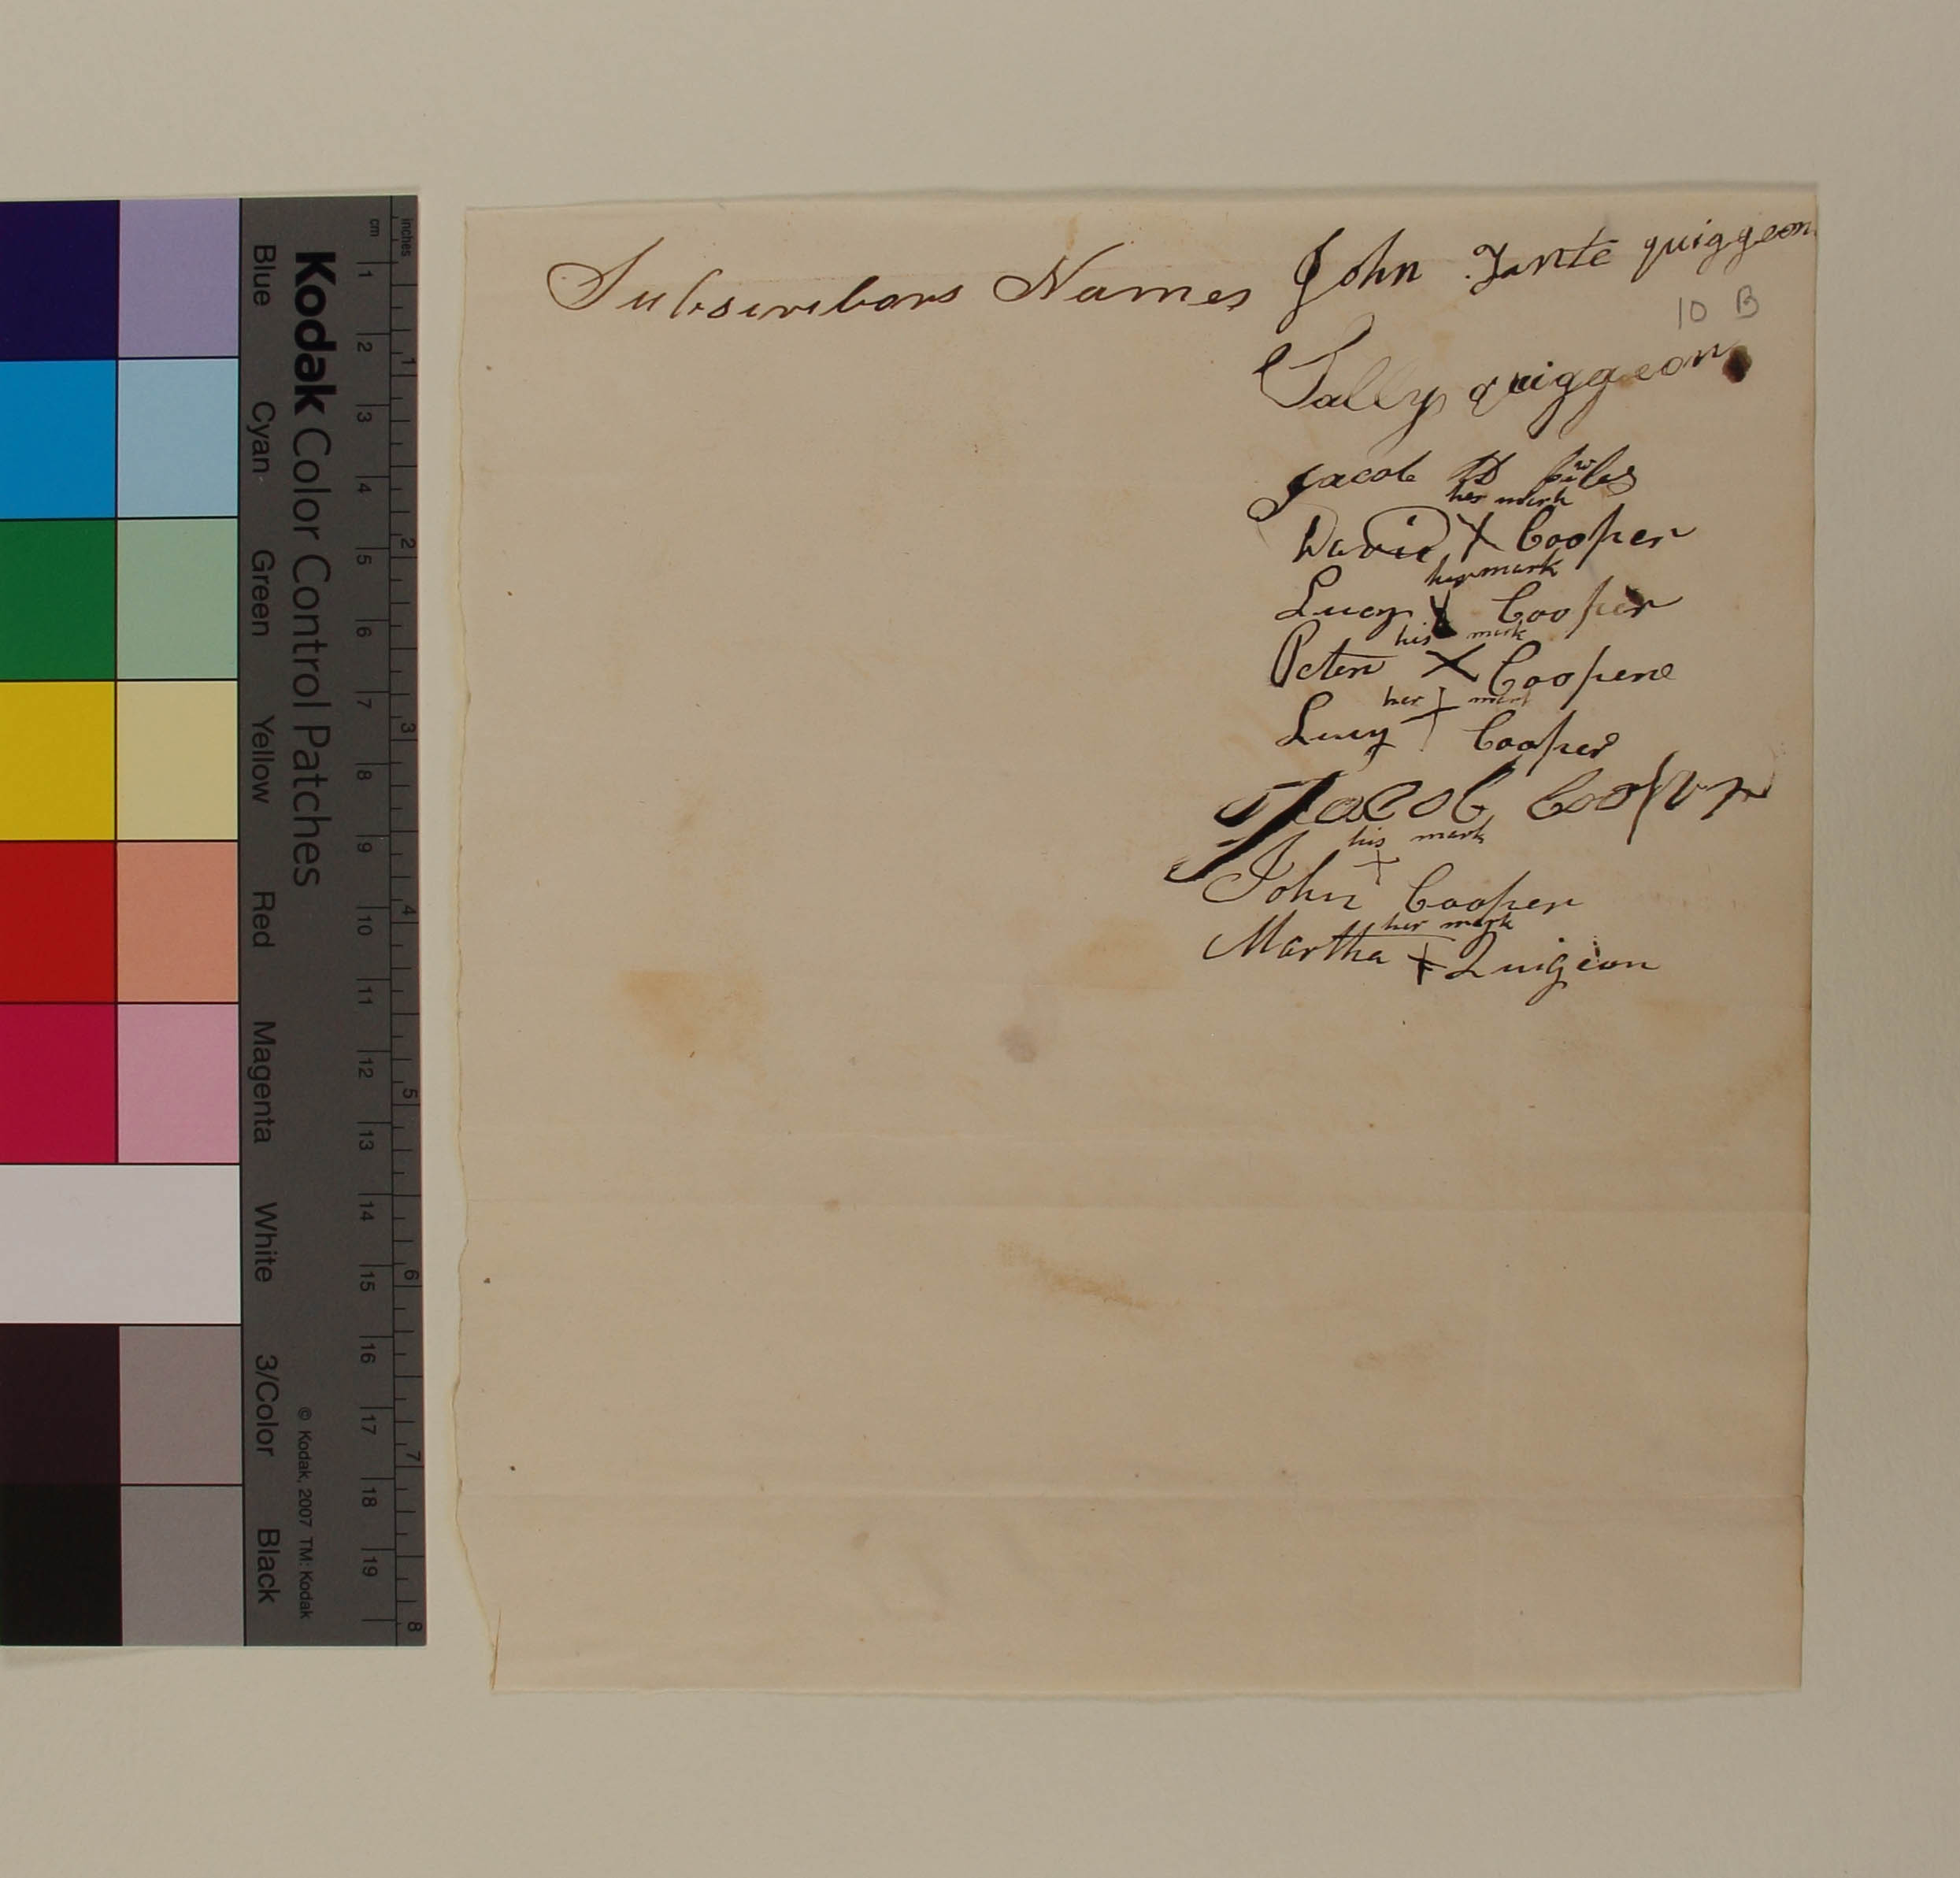 Subscribars Names John Tante quiggeon
10 B
Sally quiggeon
Jacob D
her mark
David X Cooper
her mark
Lucy X Cooper
his mark
Peter X Cooper
her X mark
Lucy Cooper
Jacob Cooper
his mark
X
John Cooper
her mark
Martha X Quigeon
Kodak Color Control Patches
© Kodak, 2007 TM: Kodak
Blue Cyan Green Yellow Red Magenta White 3/Color Black
cm 1 2 3 4 5 6 7 8 9 10 11 12 13 14 15 16 17 18 19
inches 1 2 3 4 5 6 7 8